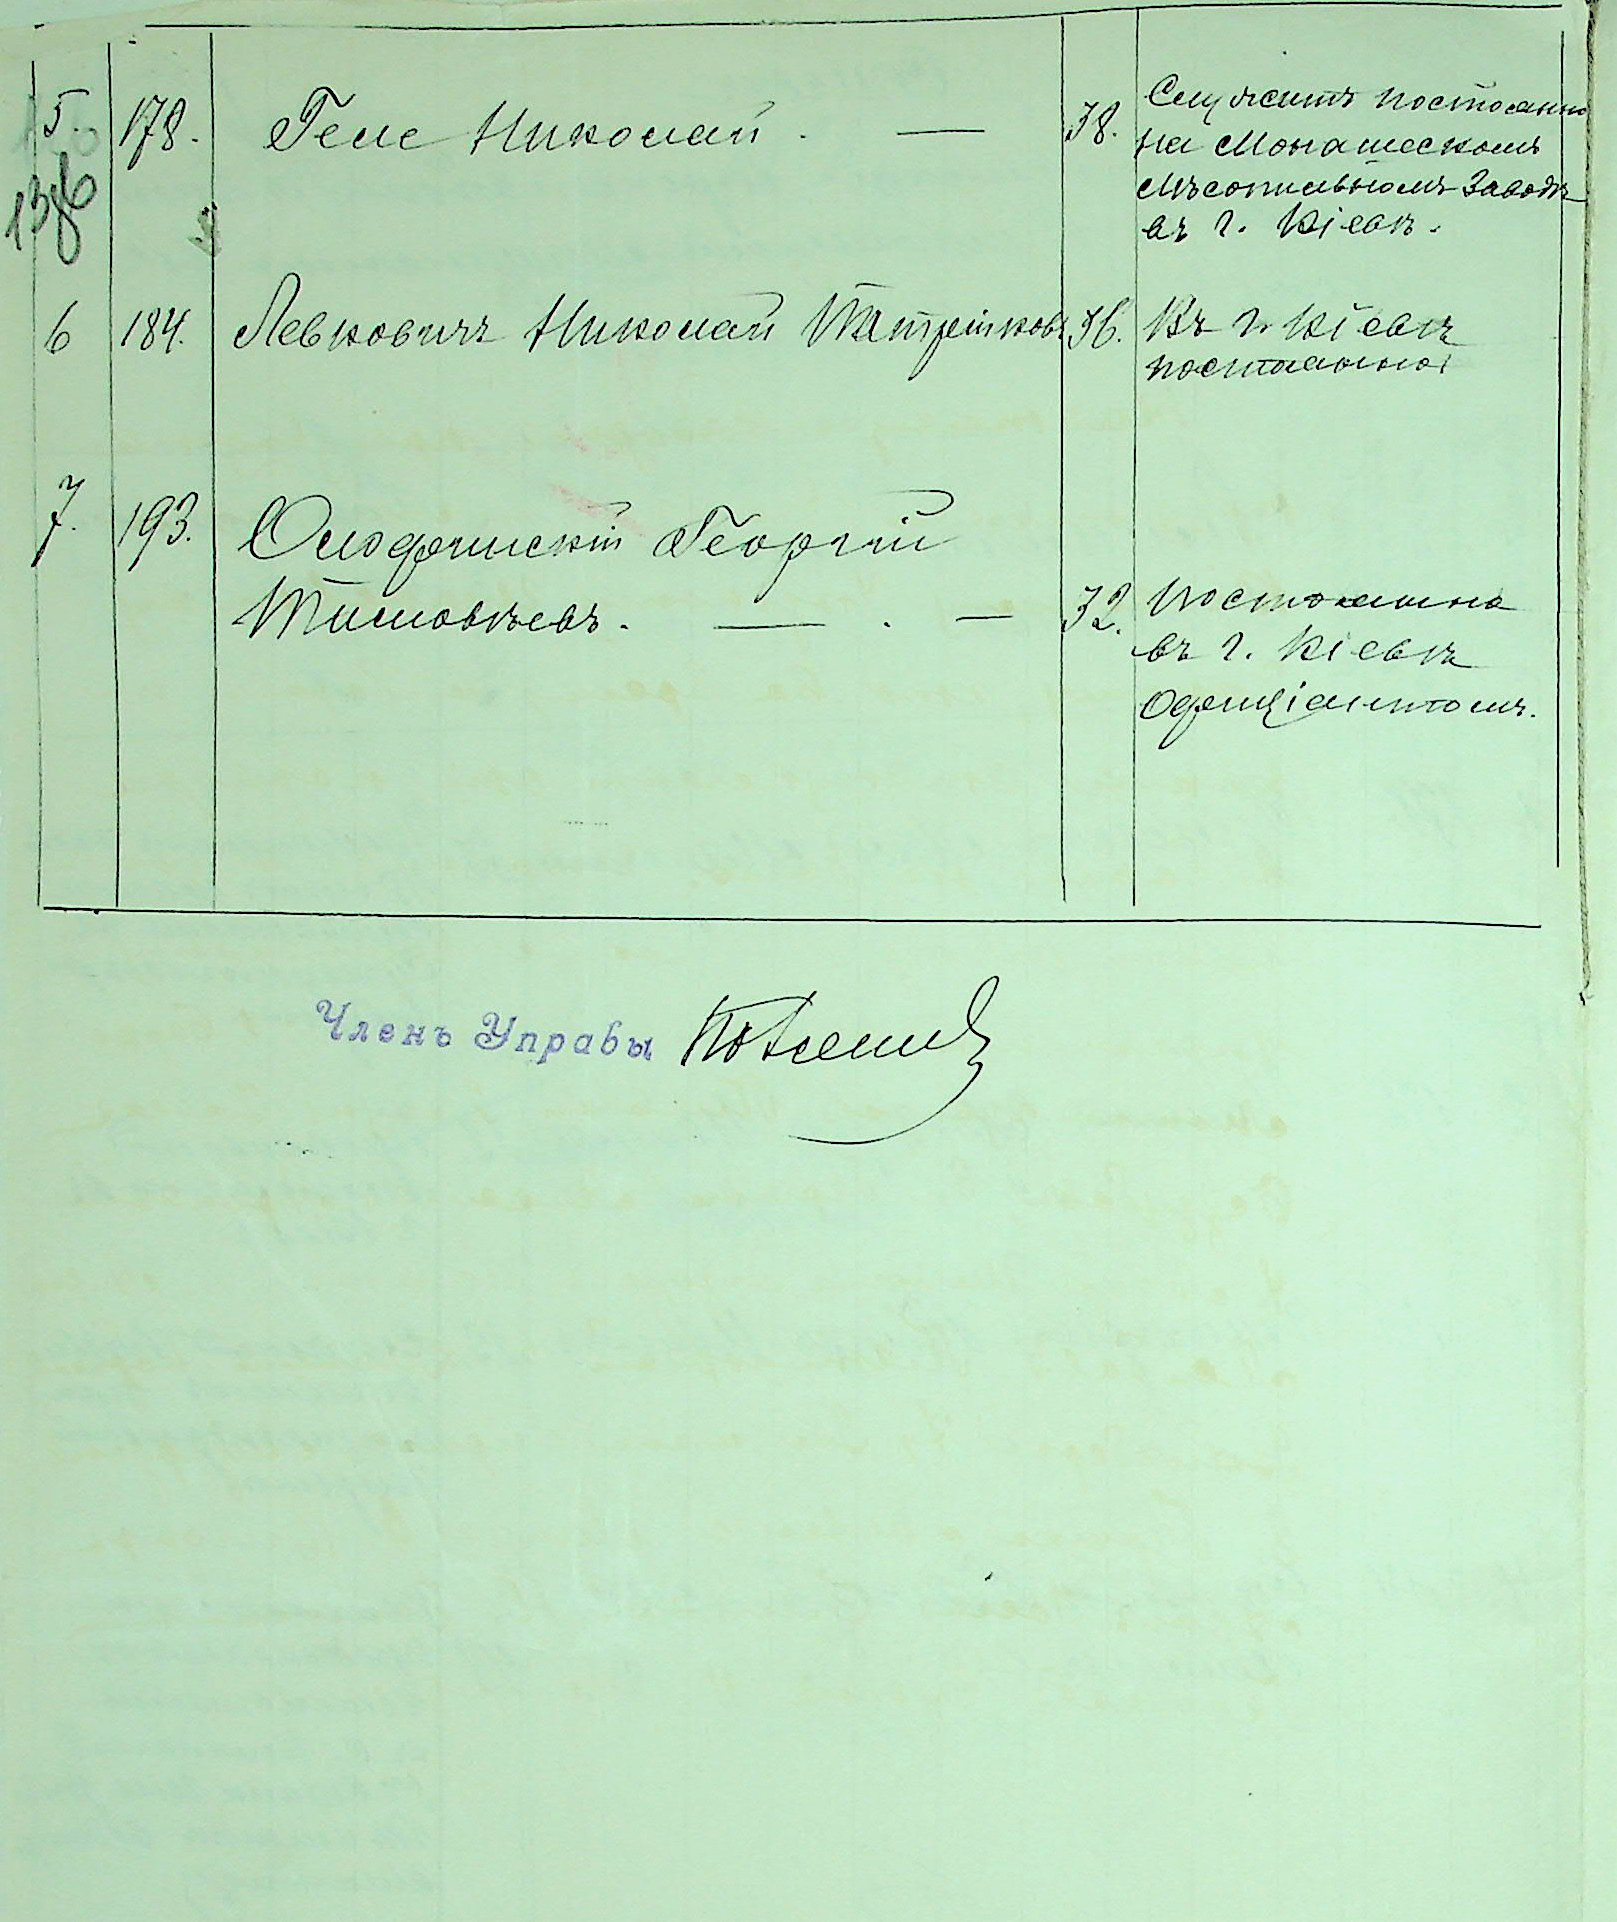 5. 178. Геле Николай. — 38. Служитъ постоянно
на Монашескомъ
Лѣсопильномъ Заводѣ
въ г. Кіевѣ.
136
6 184. Левковичъ Николай 36. Въ г. Кіевѣ
постоянно
7. 193. Георгій
Тимофѣевъ. — . — 32. Постоянно
въ г. Кіевѣ
Официантомъ.
Членъ Управы